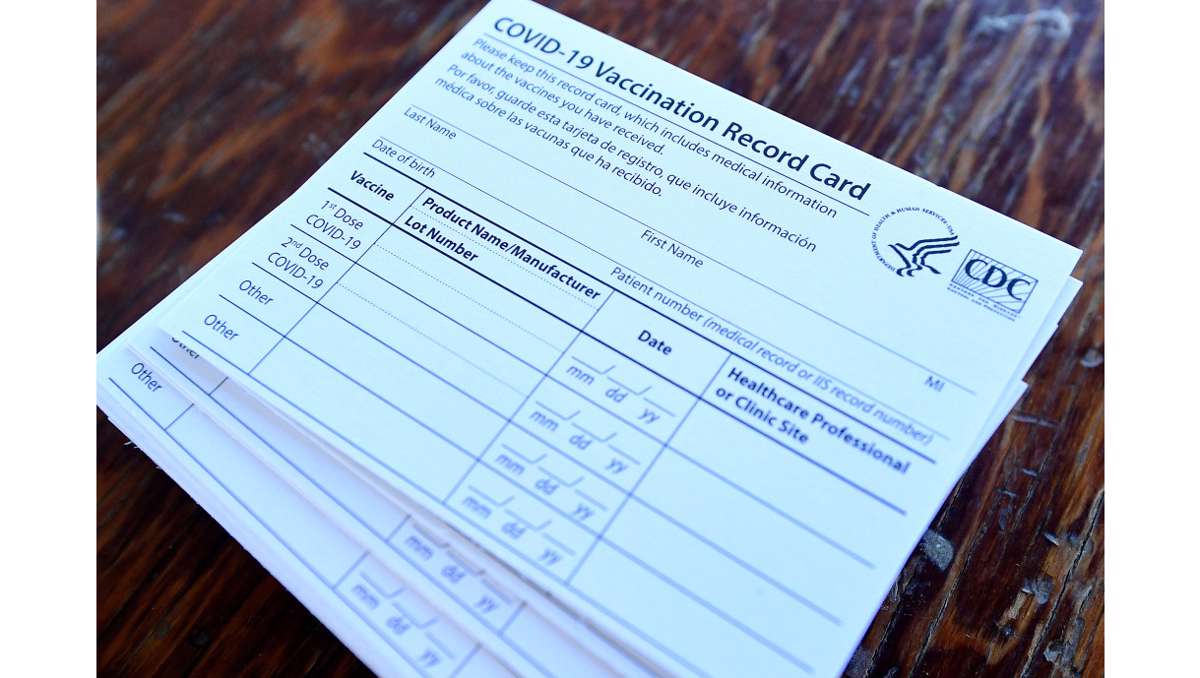 COVID-19 Vaccination Record Card
Please keep this record card, which includes medical information
about the vaccines you have received.
Por favor, guarde esta tarjeta de registro, que incluye información
médica sobre las vacunas que ha recibido.
DEPARTMENT OF HEALTH & HUMAN SERVICES•USA
CDC
Last Name
First Name
MI
Date of birth
Patient number (medical record or IIS record number)
Vaccine
Product Name/Manufacturer
Lot Number
Date
Healthcare Professional
or Clinic Site
1st Dose
COVID-19
mm dd yy
2nd Dose
COVID-19
mm dd yy
Other
mm dd yy
Other
mm dd yy
Other
mm dd yy
Other
mm dd yy